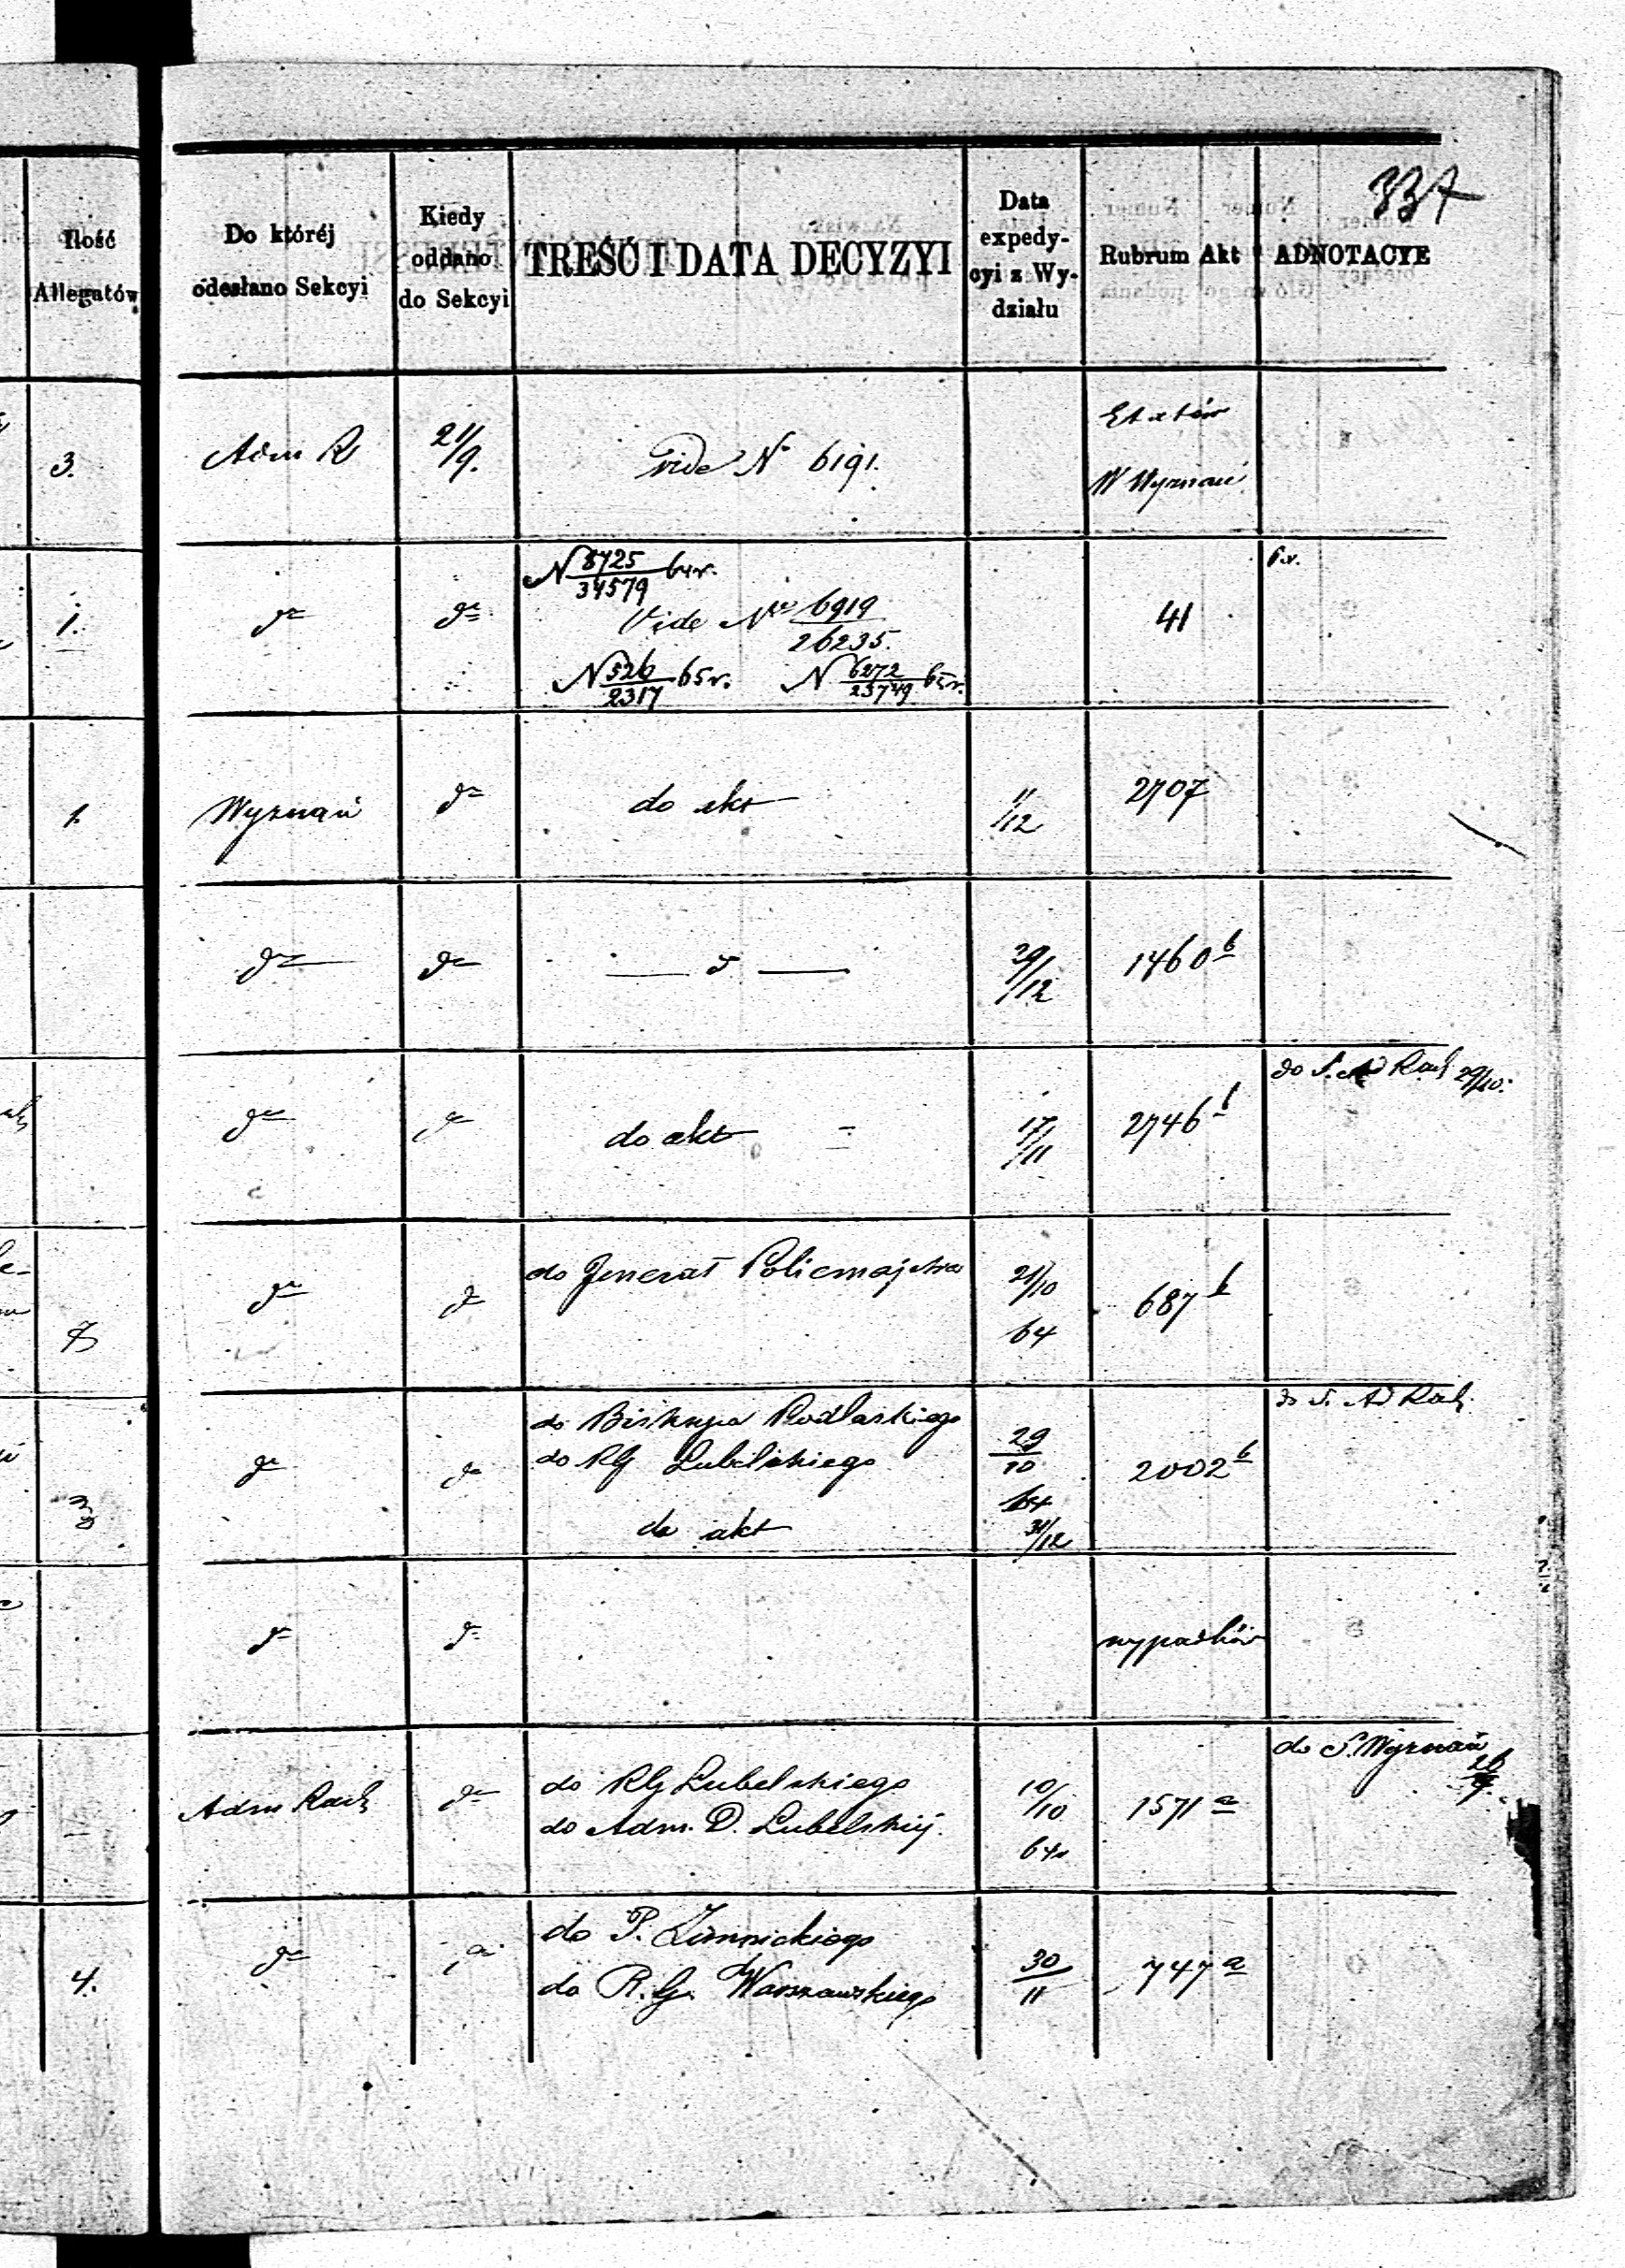 337
Ilość
Allegatów
Do któréj
odesłano Sekcyi
Kiedy
oddano
do Sekcyi
TREŚĆ I DATA DECYZYI
Data
expedy-
cyi z Wy-
działu
Rubrum Akt
ADNOTACYE
3.
Adm R
21/9.
vide No 6191.
Etatów
W Wyznań
1.
do
do
N 8725/34579 64 r.
Vide No 6919/26235.
N 526/2317 65 r. N 6272/23749 65 r.
41
1.
Wyznań
do
do akt
11/12
2707
do
do
— d —
29/12
1460 b
do
do
do akt
17/11
2746 b
do S. Ad Rach 29/10.
do
do
do Jenerał Policmajstra
21/10
64
687 b
do
do
do Biskupa Podlaskiego
do RG Lubelskiego
do akt
29/10
64
31/12
2002 b
do S. Ad Rach.
do
do
wypadków
Adm Rach
do
do RG Lubelskiego
do Adm. D. Lubelskiéj.
10/10
64
1571 a
do S. Wyznań
26/9.
4.
do
do
do P. Zimnickiego
do R. G. Warszawskiego
30/11
747 a